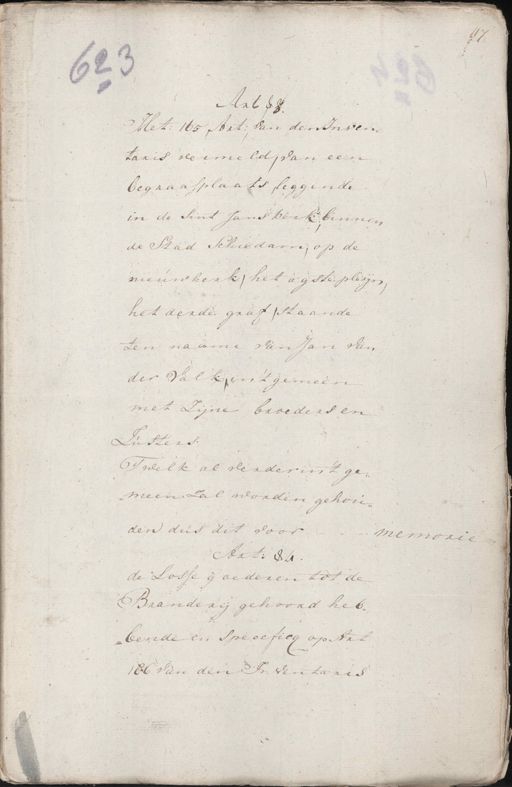 47
623
Art
Met 165 Art: van den Inven
taris vermeld, van een
begraafplaats leggende
in de Sint Jans kerk, binnen
de Stad Schiedam, op de
nieuwkerk, het agste pleijn,
het derde graf, staande
ten naame van Jan van
der Valk, in't gemeen
met Zijne broeders en
Zusters.
Twelk al verder in't ge
meen Zal worden gehou
den dus dit voor memorie
Art:
de Losse goederen tot de
Branderij gehoord heb
bende en specificq op Art
166 van den Inventaris